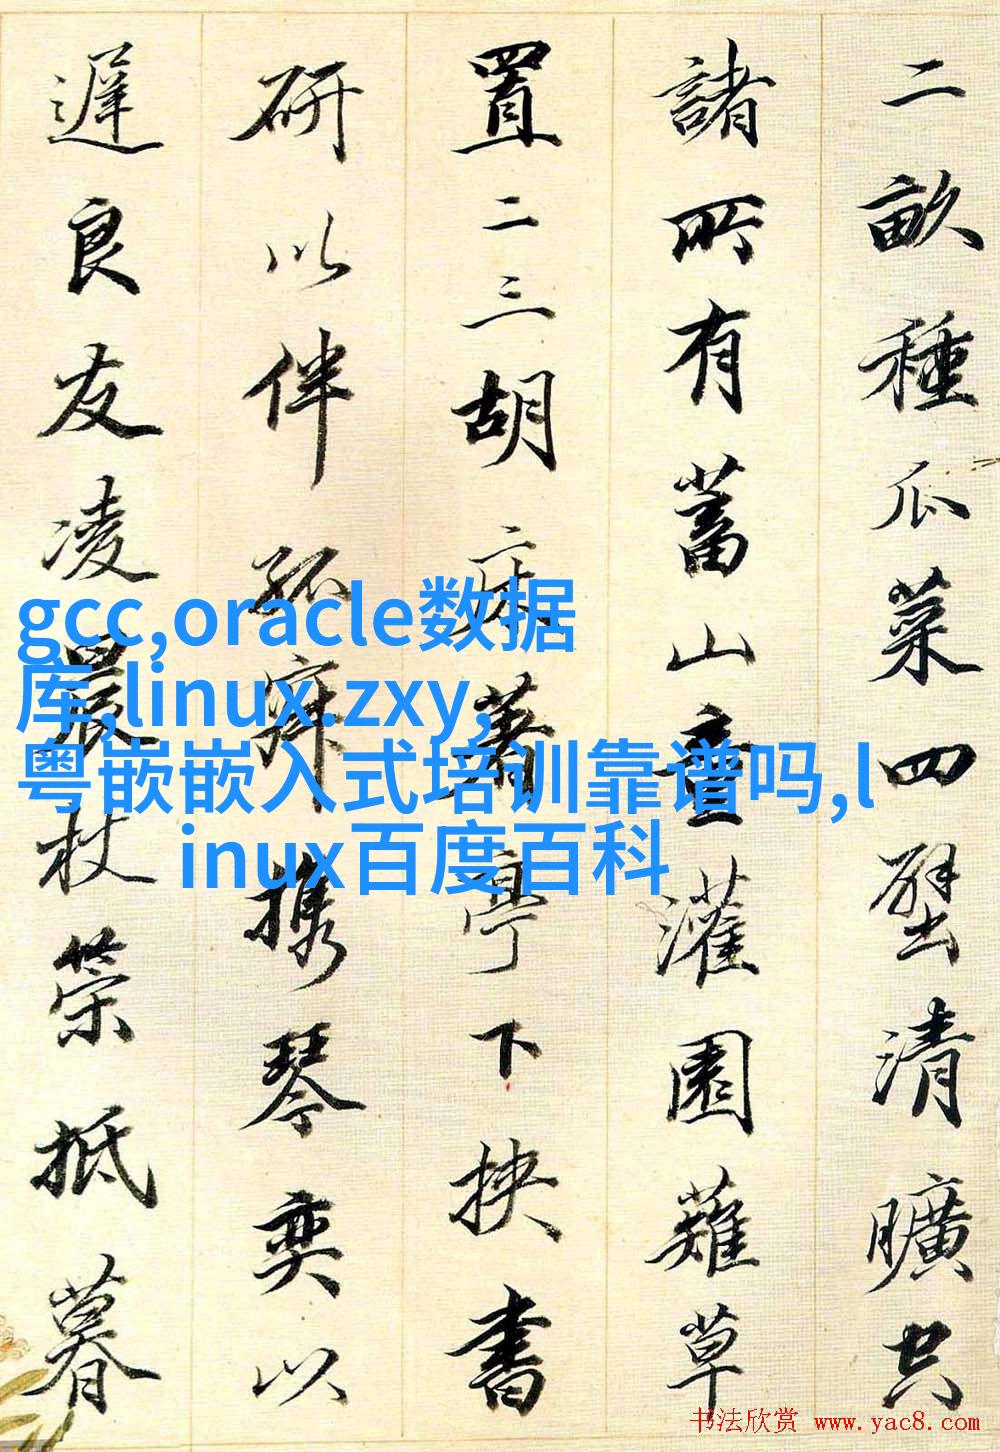 二畝種瓜菜四壁清曠空
諸所有蓄山童灌園薙草
置二三胡床著亭下挟書
研以伴孤寂携琴奕以
遲良友凌晨杖策抵暮
gcc,oracle数据
库,linux.zxy,
粤嵌嵌入式培训靠谱吗,l
inux百度百科
书法欣赏 www.yac8.com